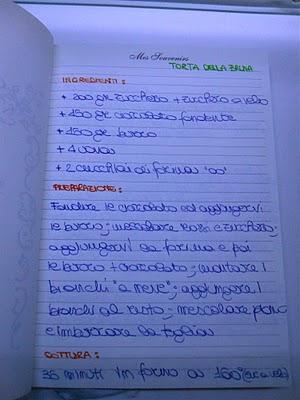 Mes Souvenirs
TORTA DELLA ZELMA
INGREDIENTI:
+ 200 gr zucchero + zucchero a velo
+ 150 gr cioccolato fondente
+ 150 gr burro
+ 4 uova
+ 2 cucchiai di farina "00"
PREPARAZIONE:
Fondere il cioccolato ed aggiungervi
il burro; mescolare rossi e zucchero;
aggiungervi la farina e poi
il burro + cioccolato; montare i
bianchi "a neve"; aggiungere i
bianchi al resto; mescolare piano
e imburrare la teglia
COTTURA:
35 minuti in forno a 160°